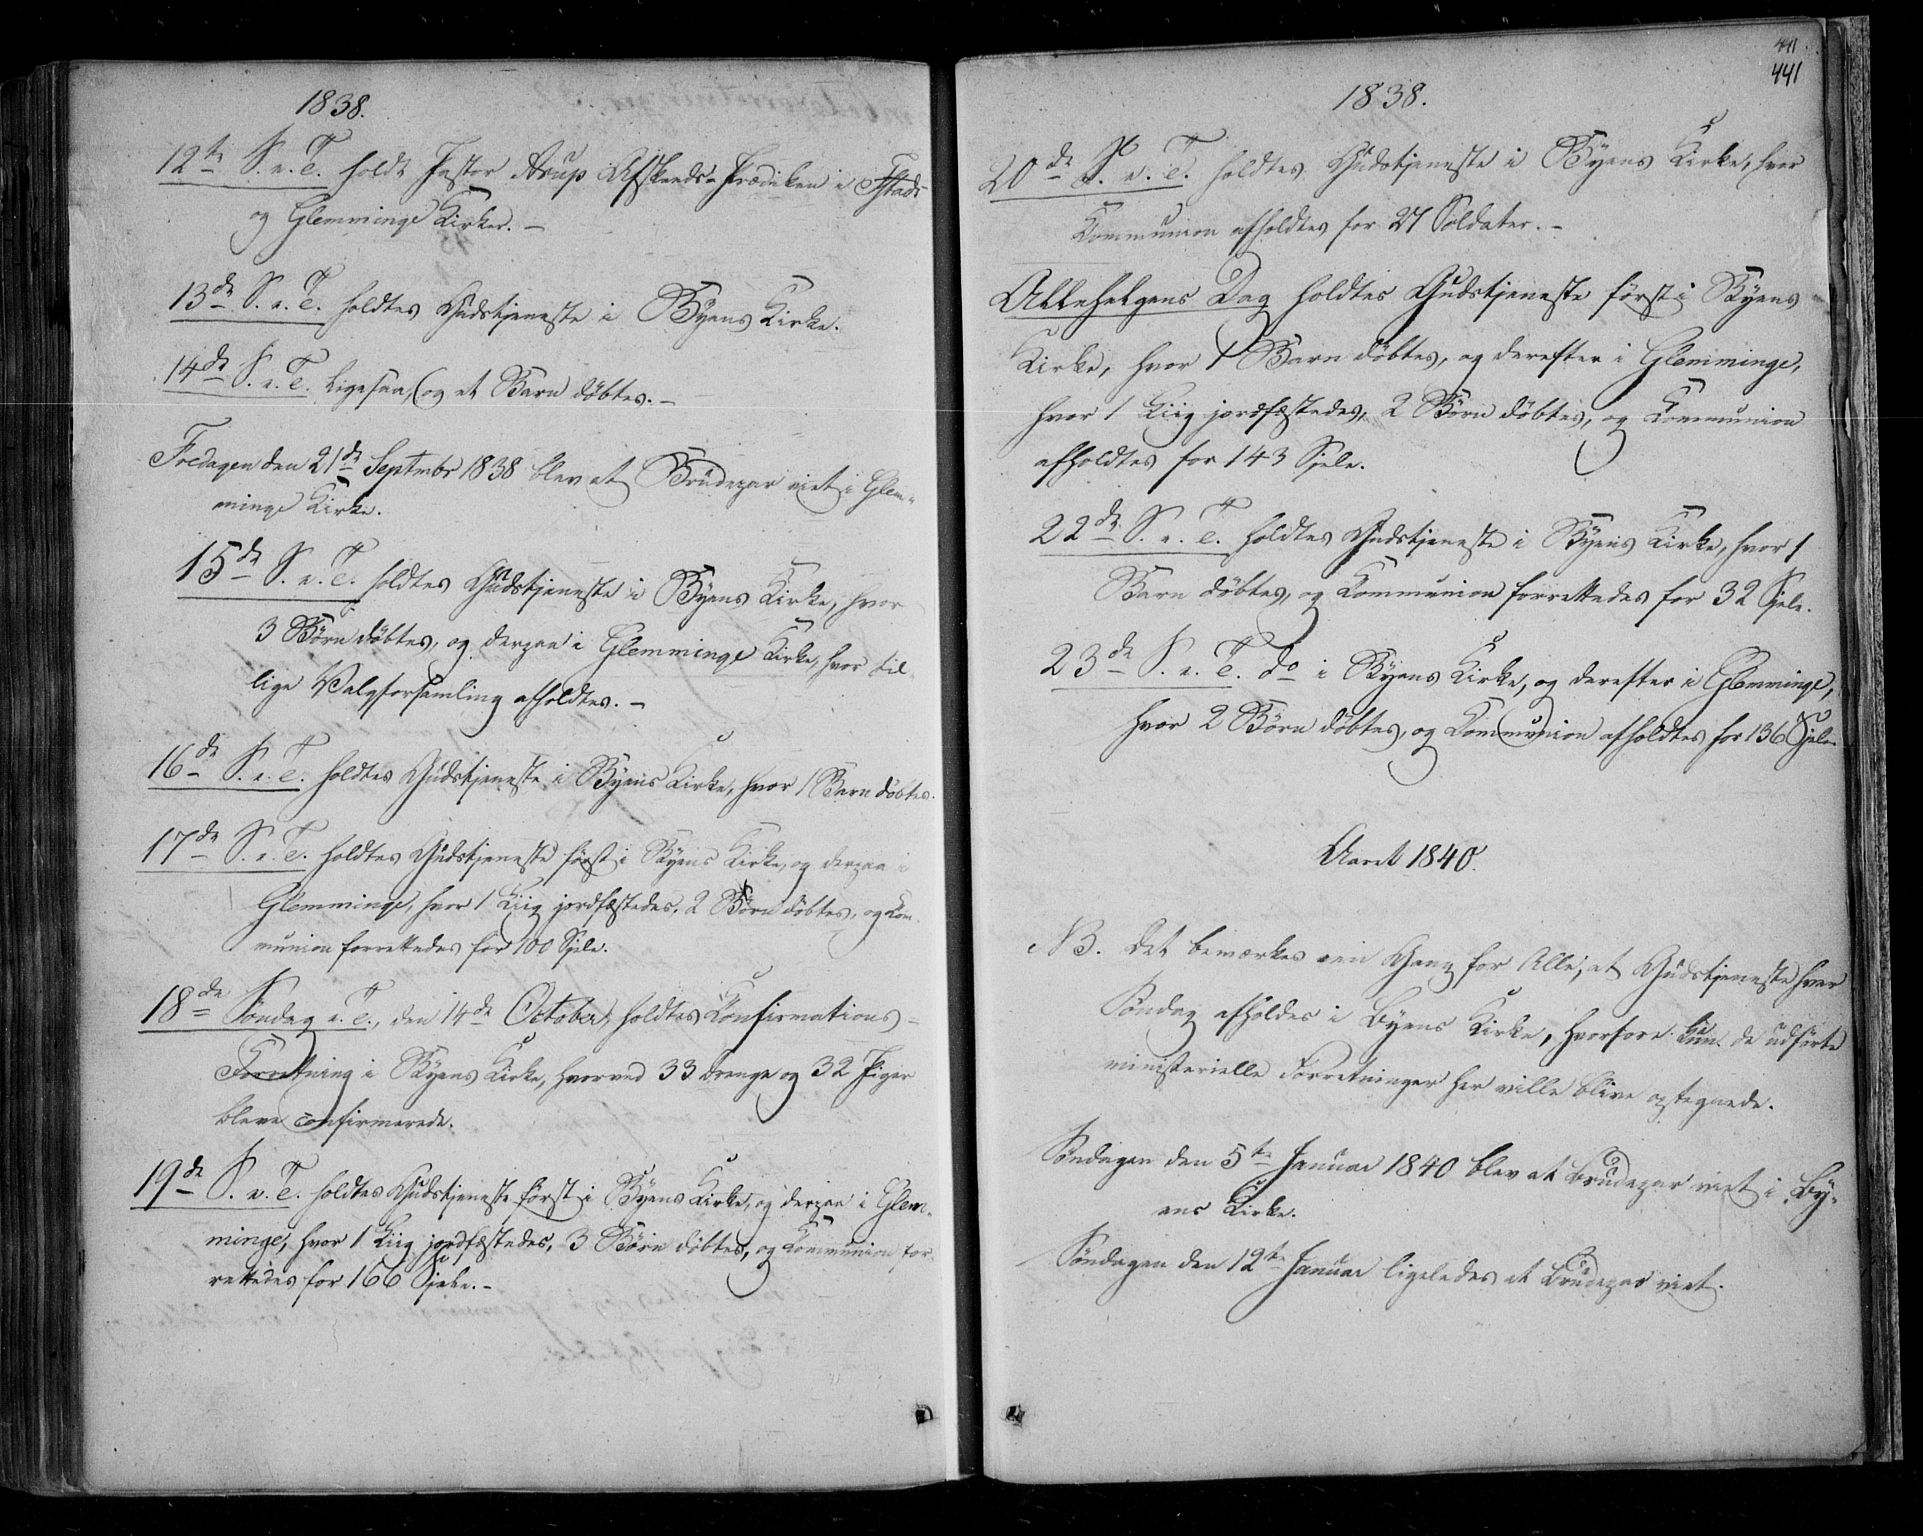 1838.
12te S. e. T. holdt Pastor Arup Afskeds-Prædiken i F:stads
og Glemminge Kirker. –
13de S. e. T. holdtes Gudstjeneste i Byens Kirke.
14de S. e. T. Ligesaa, og et Barn døbtes. –
Fredagen den 21de Septmbr 1838 blev et Brudepar viet i Glem-
minge Kirke.
15de S. e. T. holdtes Gudstjeneste i Byens Kirke, hvor
3 Børn døbtes, og derpaa i Glemminge Kirke, hvor til-
lige Valgforsamling afholdtes. –
16de S. e. T. holdtes Gudstjeneste i Byens Kirke, hvor 1 Barn døbtes.
17de S. e. T. holdtes Gudstjeneste først i Byens Kirke, og derpaa i
Glemminge, hvor 1 Liig jordfæstedes, 2 Børn døbtes, og Com-
munion forrettedes for 100 Sjele.
18de Søndag e. T., den 14de October, holdtes Confirmations-
Forretning i Byens Kirke, hvorved 33 Drenge og 32 Piger
bleve confirmerede.
19de S. e. T. holdtes Gudstjeneste først i Byens Kirke, og derpaa i Glem-
minge, hvor 1 Liig jordfæstedes, 3 Børn døbtes, og Communion for-
rettedes for 166 Sjele. –
441
441
1838.
20de S. e. T. holdtes Gudstjeneste i Byens Kirke, hvor
Communion afholdtes for 27 Soldater. –
Allehelgens Dag holdtes Gudstjeneste først i Byens
Kirke, hvor 1 Barn døbtes, og derefter i Glemminge,
hvor 1 Liig jordfæstedes, 2 Børn døbtes, og Communion
afholdtes for 143 Sjele.
22de S. e. T. holdtes Gudstjeneste i Byens Kirke, hvor 1
Barn døbtes, og Communion forrettedes for 32 Sjele.
23de S. e. T. do i Byens Kirke, og derefter i Glemminge,
hvor 2 Børn døbtes, og Communion afholdtes for 136 Sjele
Aaret 1840.
NB. Det bemærkes een Gang for Alle, at Gudstjeneste hver
Søndag afholdes i Byens Kirke, hvorfore kun de udførte
ministerielle Forretninger her ville blive optegnede.
Søndagen den 5te Januar 1840 blev et Brudepar viet i By-
ens Kirke.
Søndagen den 12te Januar ligeledes et Brudepar viet.